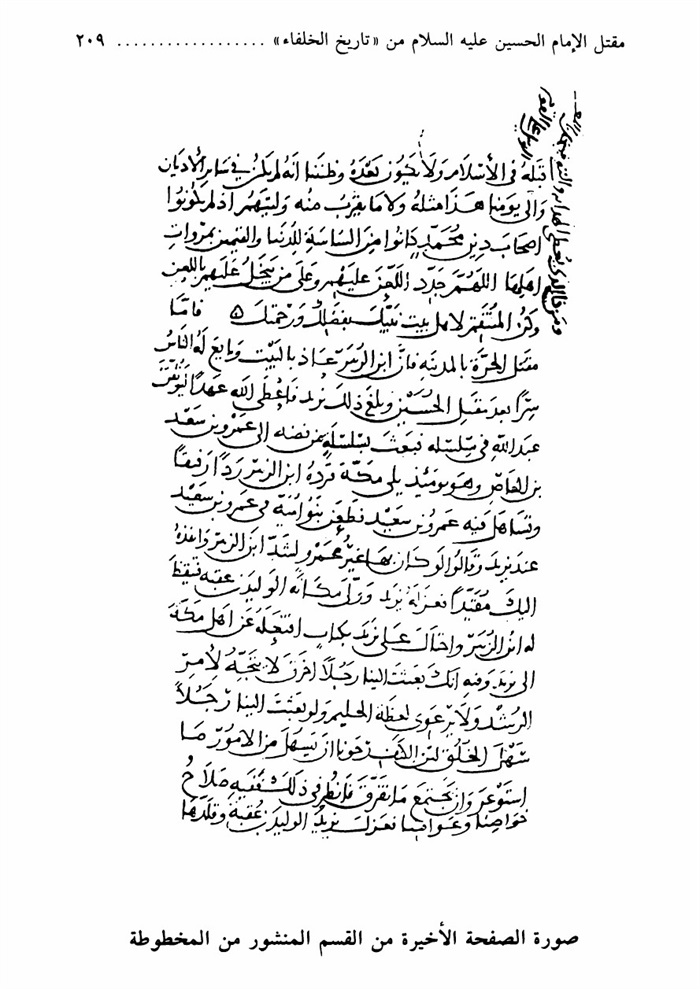 مقتل الإمام الحسين عليه السلام من «تاريخ الخلفاء» .................. ٢٠٩
قتله في الأسلام ولا يكون بعده وظننا انه لم يكن في ساير الأديان
والى يومنا هذا مثله ولا ما يقرب منه وليتهم اذ لم يكونوا
اصحاب دين محمد كانوا من الساسة للدنيا والقيمين بمروات
اهلها اللهم جدد اللعن عليهم وعلى من يبخل عليهم باللعن
وكن المنتقم لاهل بيت نبيك بفضلك ورحمتك ٥ فامّا
مقتل الحرّة بالمدينة فانّ ابن الزبير عاذ بالبيت وبايع له الناس
سرّا بعد مقتل الحسين وبلغ ذلك يزيد فاعطى الله عهدًا ليؤتينّ
عبد الله في سلسله فبعث بسلسلة من فضه الى عمرو بن سعيد
بن العاص وهو يومئذ يلي مكة فرده ابن الزبير ردا رفيقا
وتساهل فيه عمرو بن سعيد فطعن بنو امية في عمرو بن سعيد
عند يزيد وقالوا لو كان بها غير عمرو لشدّ ابن الزبير وانفذه
اليك مقيّدا فعزله يزيد وولّى مكانه الوليد بن عقبه فتيقظ
له ابن الزبير واحتال على يزيد بكتاب افتعله عن اهل مكة
الى يزيد وفيه انك بعثت الينا رجلا اخرق لا يتجه لأمر
الرشد ولا يرعوى لعظة الحليم ولو بعثت الينا رجلاً
سهل الخلق لين الكنف رجونا ان يسهل من الامور ما
استوعر وان يجتمع ما تفرق فانظر في ذلك ففيه صلاح
خواصنا وعوامنا فعزل يزيد الوليد بن عقبة وقلدها
صورة الصفحة الأخيرة من القسم المنشور من المخطوطة